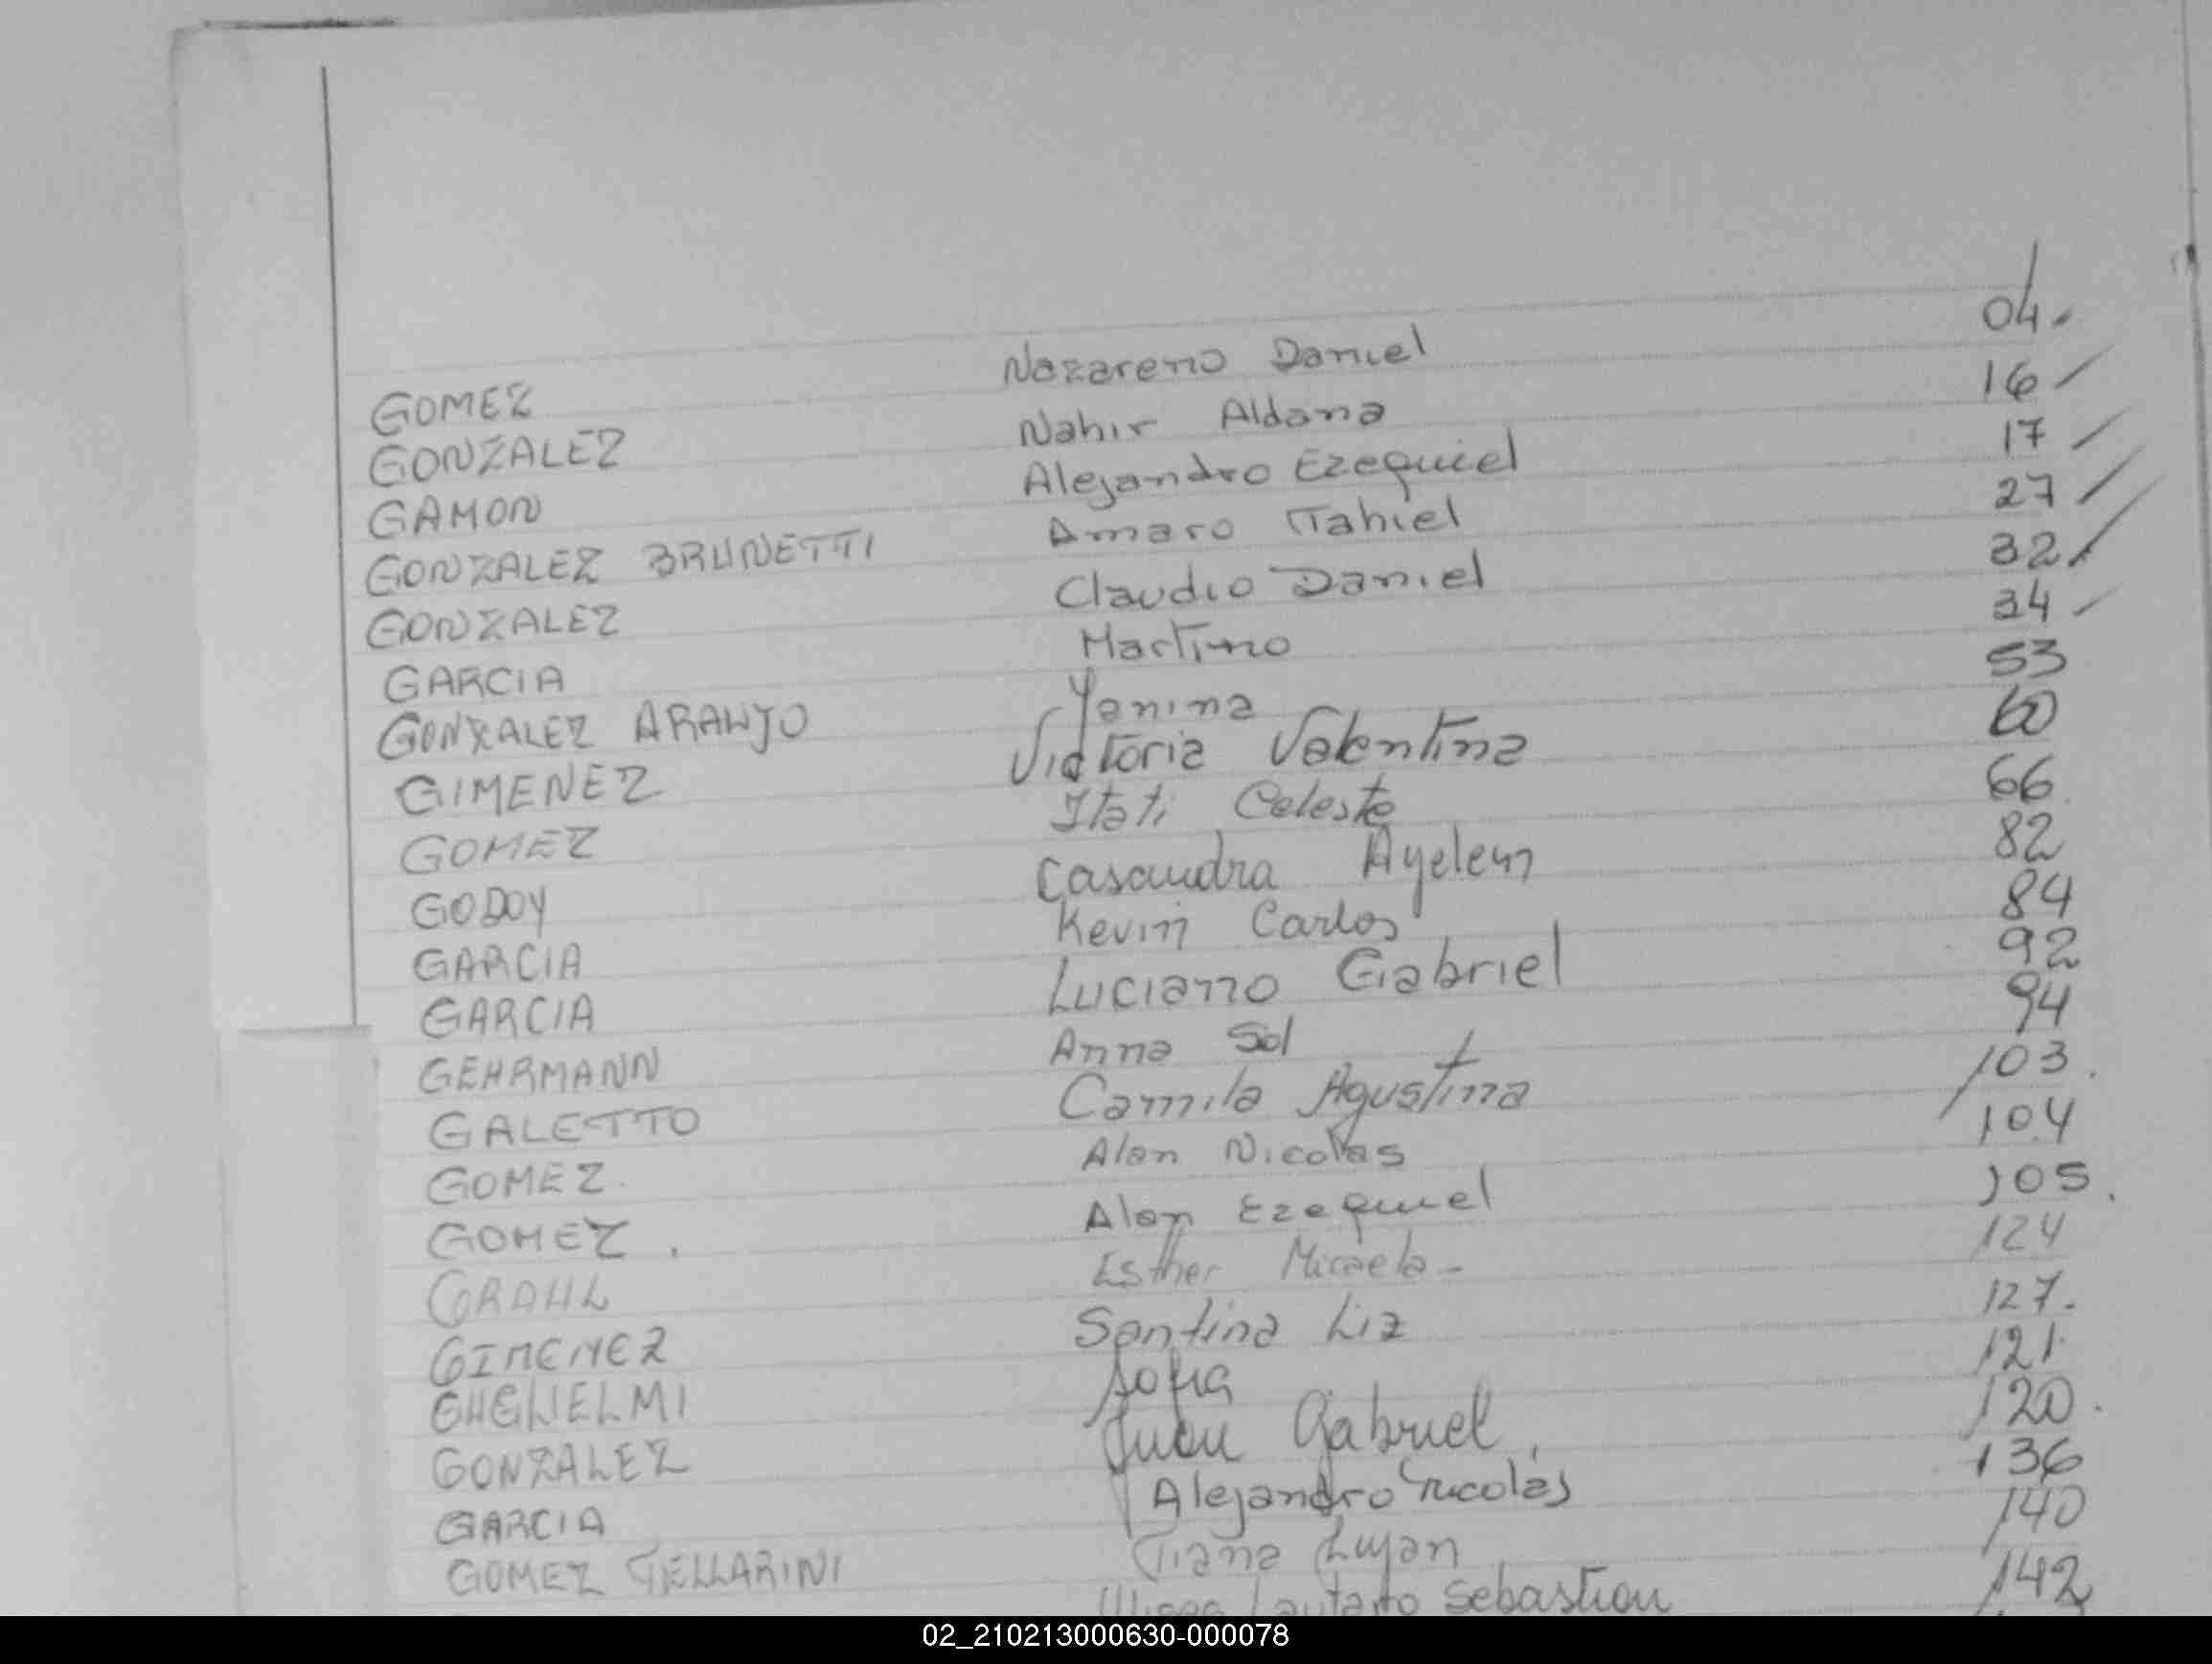 GOMEZ Nazareno Daniel 04.
GONZALEZ Nahir Aldana 16
GAMON Alejandro Ezequiel 17
GONZALEZ BRUNETTI Amaro Tahiel 27
GONZALEZ Claudio Daniel 32
GARCIA Martino 34
GONZALEZ ARAUJO Yanina 53
GIMENEZ Victoria Valentina 60
GOMEZ Itati Celeste 66
GODOY Casandra Ayelen 82
GARCIA Kevin Carlos 84
GARCIA Luciano Gabriel 92
GEHRMANN Anna Sol 94
GALETTO Camila Agustina 103.
GOMEZ. Alan Nicolas 104
GOMEZ. Alan Ezequiel 105.
GRAHL Esther Micaela - 124
GIMENEZ Santina Liz 127.
Sofia 121.
GONZALEZ Juan Gabriel. 120.
GARCIA Alejandro Nicolás 136
GOMEZ TELLARINI Tiana Lujan 140
Lautaro Sebastian 142
02_210213000630-000078